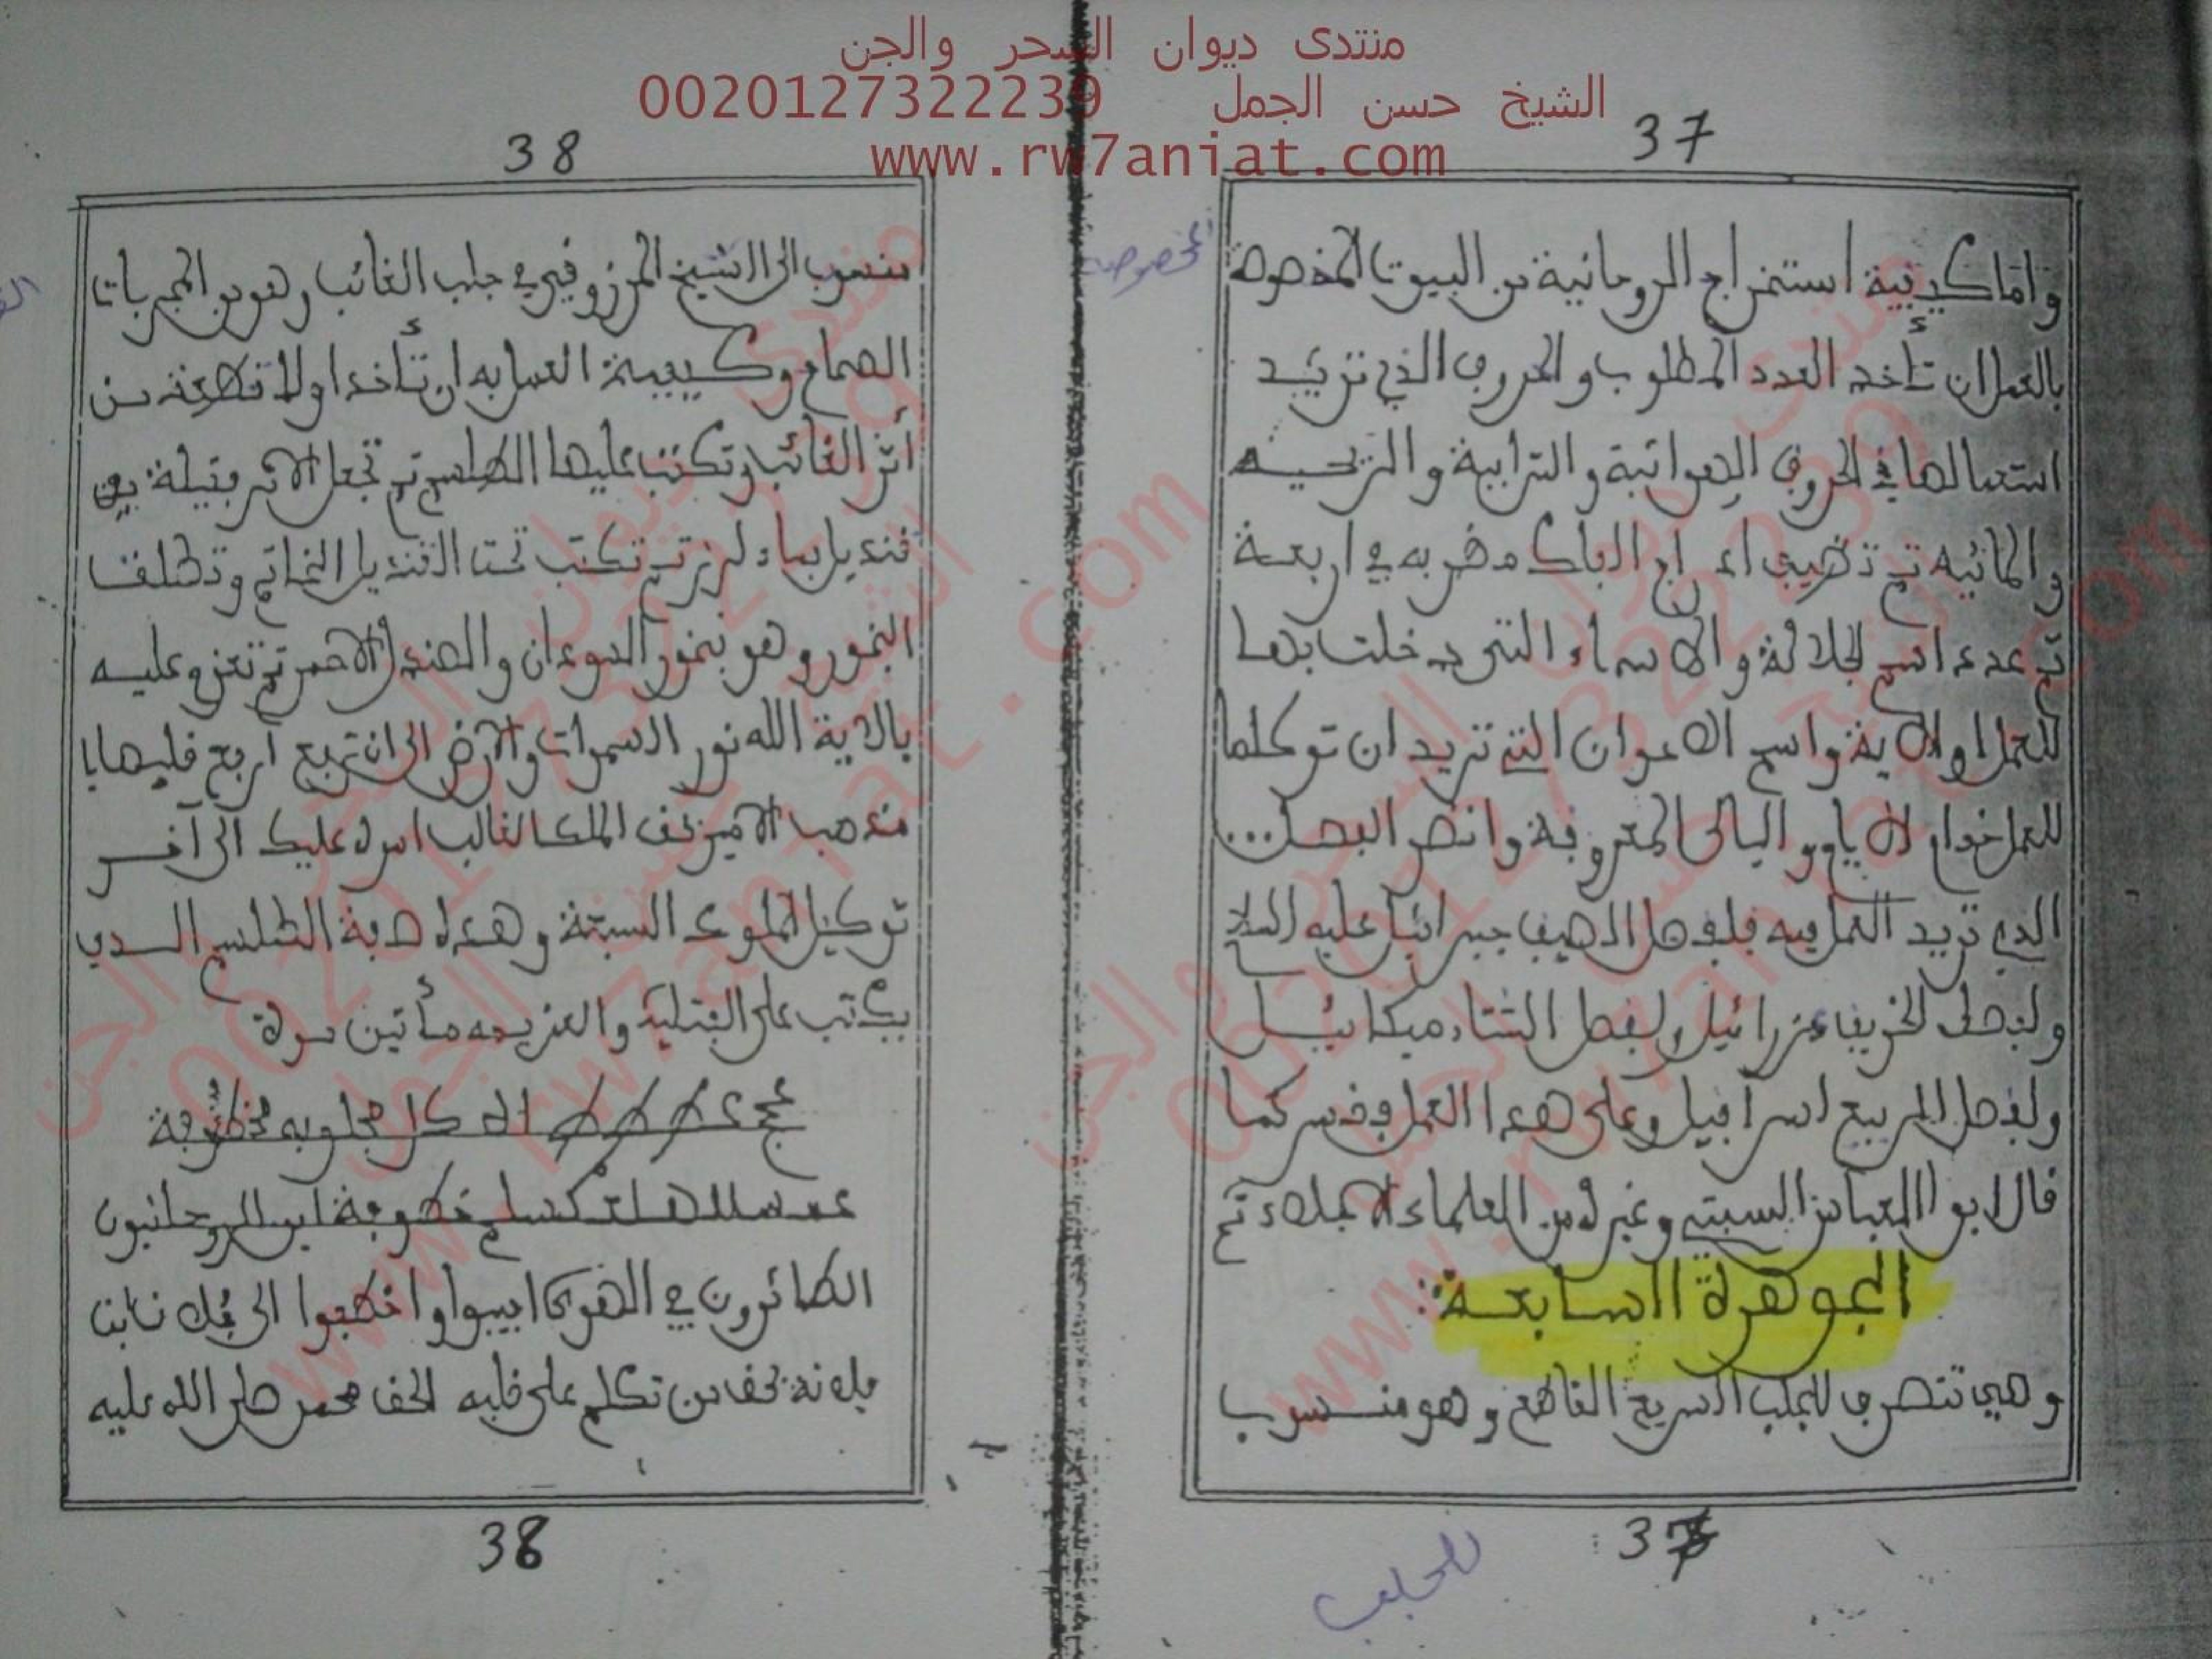 منتدى ديوان السحر والجن
الشيخ حسن الجمل 0020127322239
www.rw7aniat.com
37
واما كيفية استخراج الروحانية من البيوت المخصوصة
المخصوصة
بالعمل ان تأخد العدد المطلوب والحروف الذي تريد
استعمالها في الحروف الهوائية والترابية و
والمائيه تم تضيف اد راج الباك مضربه في اربعة
تم عدد اسم الجلالة والاسماء التي دخلت بها
للعمل اولاية واسم الاعوان التي تريد ان توكلها
للعمل خدام الايام واليالى المعروفة وانضر الفصل...
الدي تريد العمل فيه فلفصل الصيف جبرائيل عليه السلام
ولفصل الخريف عزرائيل ولفصل الشتاء ميكائيل
ولفصل الربيع اسرافيل وعلى هدا العمل وفسر كما
قال ابو العباس السبتي وغيره من العلماء الاجلاء تم
الجوهرة السابعة:
وهي تتصرف للجلب السريع القاطع وهو منسوب
37
للجلب
38
منسوب الى الشيخ المرزوقي في جلب الغائب وهو من المجربات
الصحاح وكيفية العمل به ان تأخد اولا قطعة من
أثر الغائب وتكتب عليها الطلسم تم تجعل الاثر فتيلة في
قنديل بماء تم تكتب تحت القنديل الخاتم وتطلق
البخور وهو بخور السودان والصندل الاحمر تم تعزم عليه
بالاية الله نور السموات والارض الى ان
بحق الملك الغالب امره عليك الى آخر
توكيل الملوك السبعة وهده صفة الطلسم الدي
يكتب على الفتيلة والعزيمه مأتين مرة
الروحانيون
الطائرون في الهوى اجيبوا واخطفوا الى
بحق من تكلم على قلبه الحق محمد صلى الله عليه
38